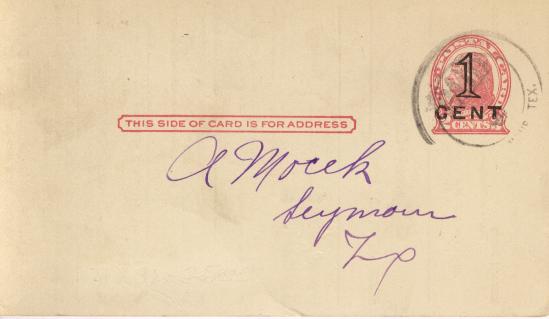 1
CENT
CENTS
TEX.
THIS SIDE OF CARD IS FOR ADDRESS
A Mocek
Seymour
Tx